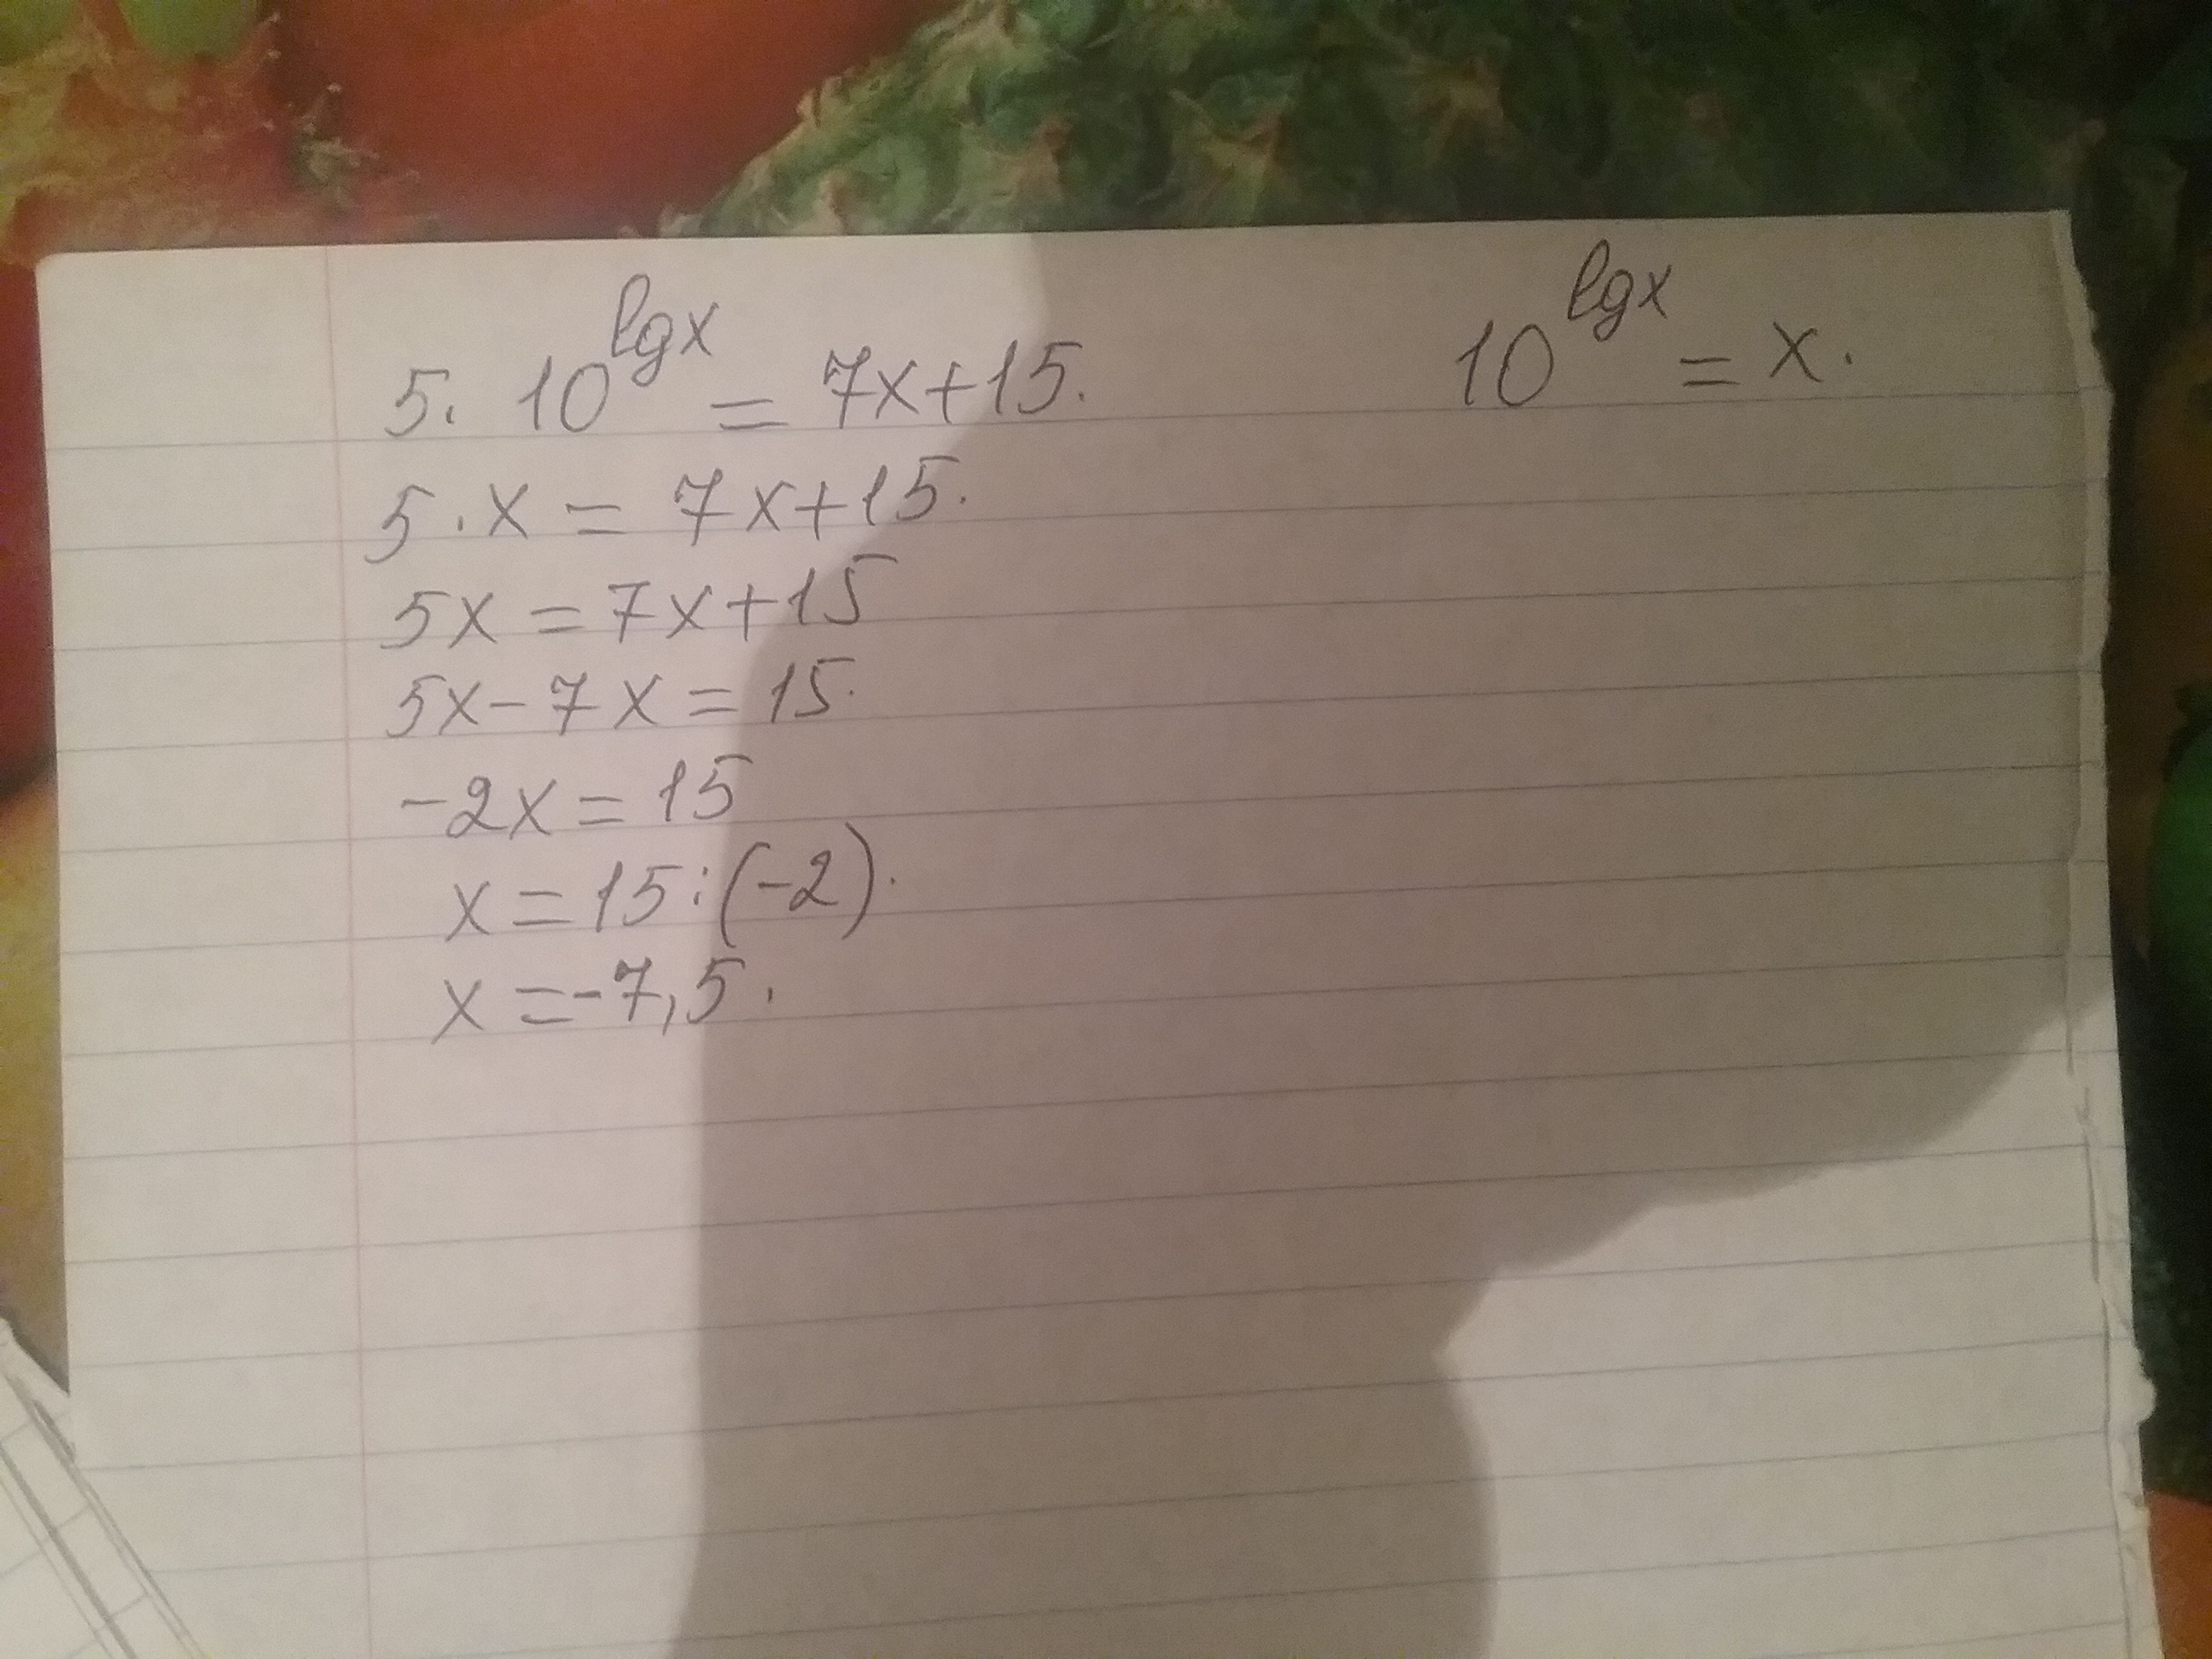 5. 10^lgx = 7x+15. 10^lgx = x.
5·x = 7x+15.
5x = 7x+15
5x-7x = 15.
-2x = 15
x = 15:(-2).
x = -7,5.